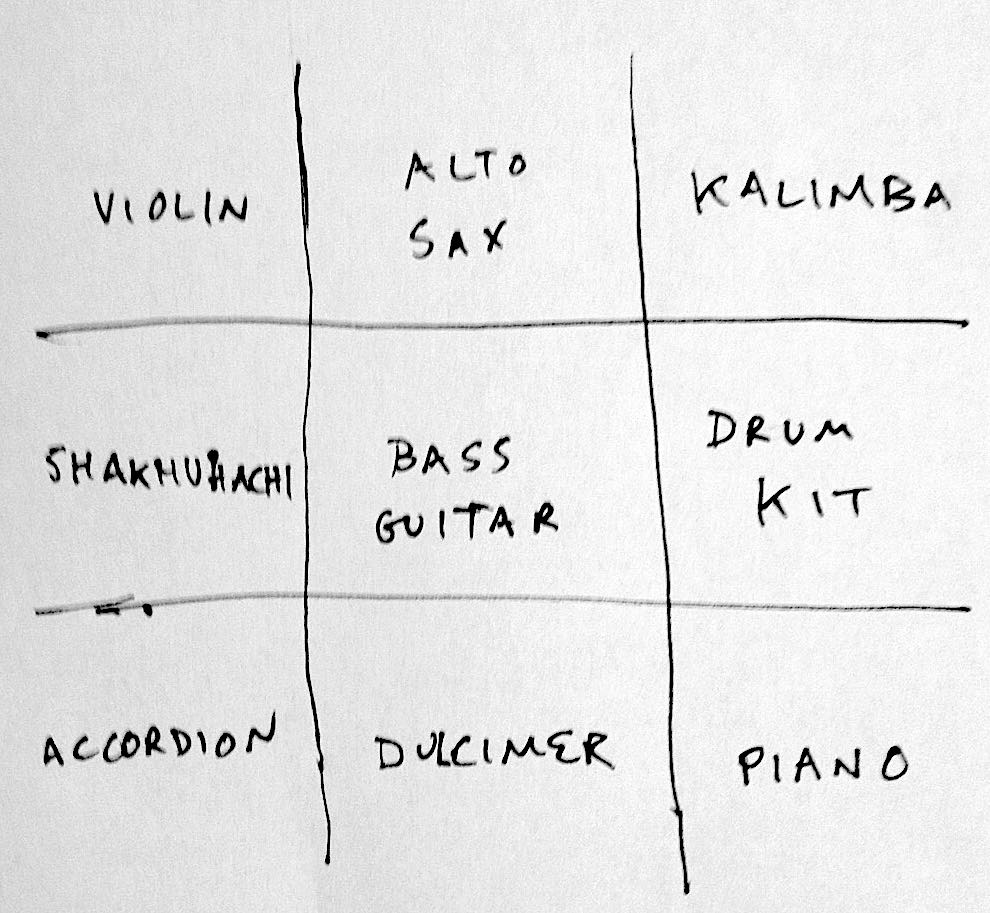 VIOLIN
ALTO
SAX
KALIMBA
SHAKHUHACHI
BASS
GUITAR
DRUM
KIT
ACCORDION
DULCIMER
PIANO